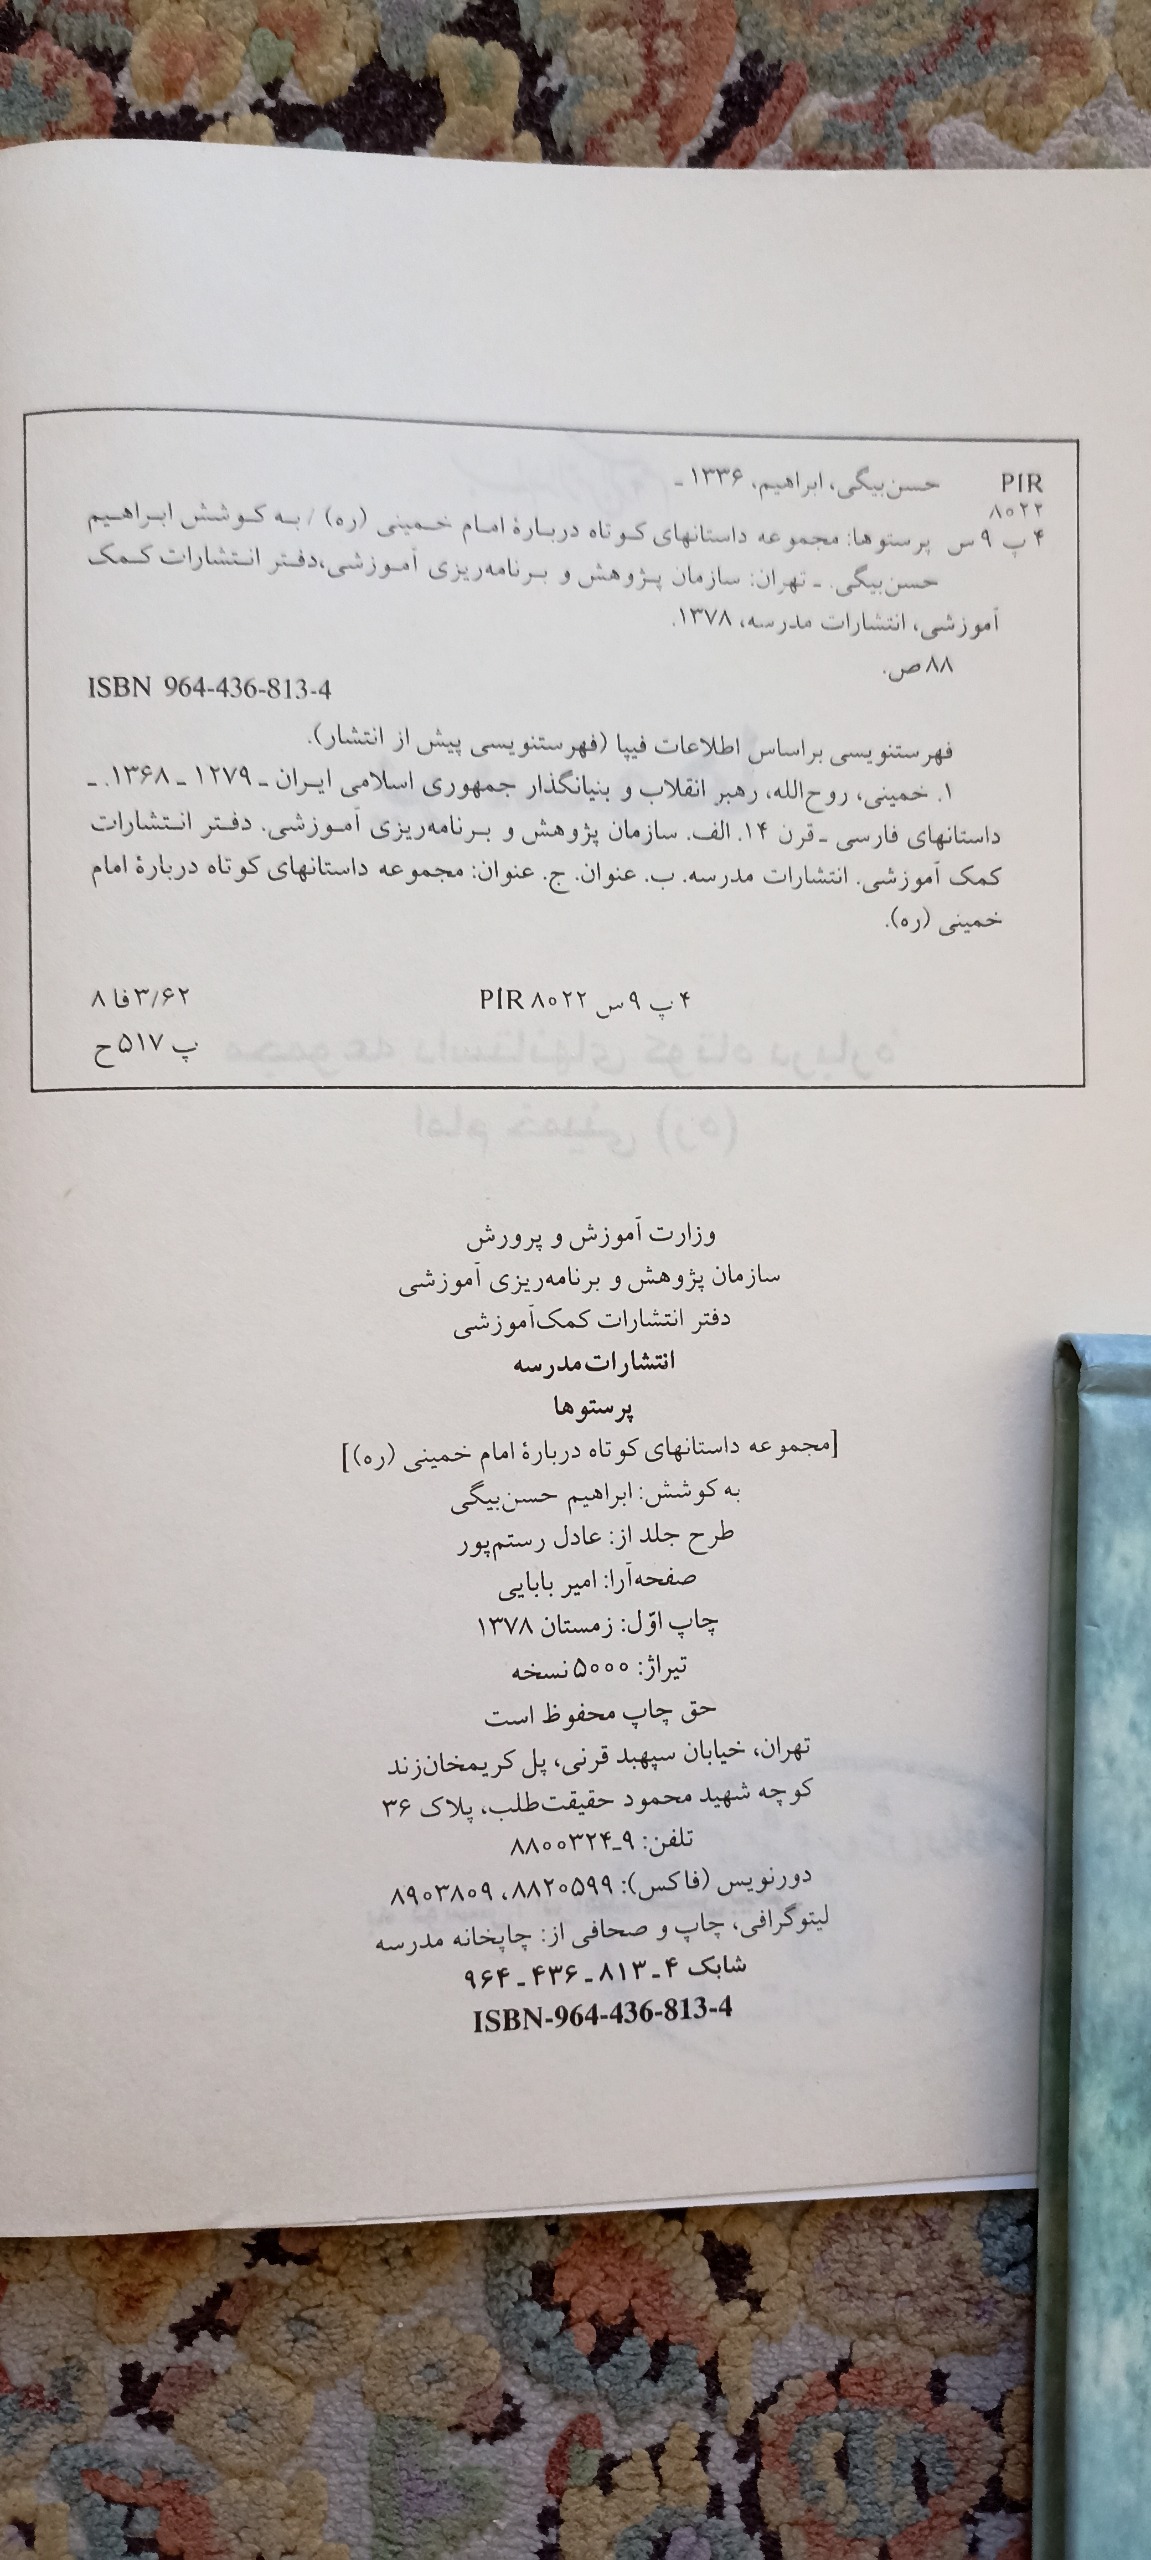 PIR حسن‌بیگی، ابراهیم، ۱۳۳۶ ـ
۸۰۲۲
۴ پ ۹ س پرستوها: مجموعه داستانهای کوتاه دربارهٔ امام خمینی (ره) / به کوشش ابراهیم
حسن‌بیگی. ـ تهران: سازمان پژوهش و برنامه‌ریزی آموزشی، دفتر انتشارات کمک
آموزشی، انتشارات مدرسه، ۱۳۷۸.
۸۸ ص.
ISBN 964-436-813-4
فهرستنویسی براساس اطلاعات فیپا (فهرستنویسی پیش از انتشار).
۱. خمینی، روح‌الله، رهبر انقلاب و بنیانگذار جمهوری اسلامی ایران ـ ۱۲۷۹ ـ ۱۳۶۸. ـ
داستانهای فارسی ـ قرن ۱۴. الف. سازمان پژوهش و برنامه‌ریزی آموزشی. دفتر انتشارات
کمک آموزشی. انتشارات مدرسه. ب. عنوان. ج. عنوان: مجموعه داستانهای کوتاه دربارهٔ امام
خمینی (ره).
۴ پ ۹ س PIR ۸۰۲۲ ۸ فا ۳/۶۲
پ ۵۱۷ ح
وزارت آموزش و پرورش
سازمان پژوهش و برنامه‌ریزی آموزشی
دفتر انتشارات کمک‌آموزشی
انتشارات مدرسه
پرستوها
[مجموعه داستانهای کوتاه دربارهٔ امام خمینی (ره)]
به کوشش: ابراهیم حسن‌بیگی
طرح جلد از: عادل رستم‌پور
صفحه‌آرا: امیر بابایی
چاپ اوّل: زمستان ۱۳۷۸
تیراژ: ۵۰۰۰ نسخه
حق چاپ محفوظ است
تهران، خیابان سپهبد قرنی، پل کریمخان‌زند
کوچه شهید محمود حقیقت‌طلب، پلاک ۳۶
تلفن: ۹ـ۸۸۰۰۳۲۴
دورنویس (فاکس): ۸۸۲۰۵۹۹، ۸۹۰۳۸۰۹
لیتوگرافی، چاپ و صحافی از: چاپخانه مدرسه
شابک ۴ ـ ۸۱۳ ـ ۴۳۶ ـ ۹۶۴
ISBN-964-436-813-4